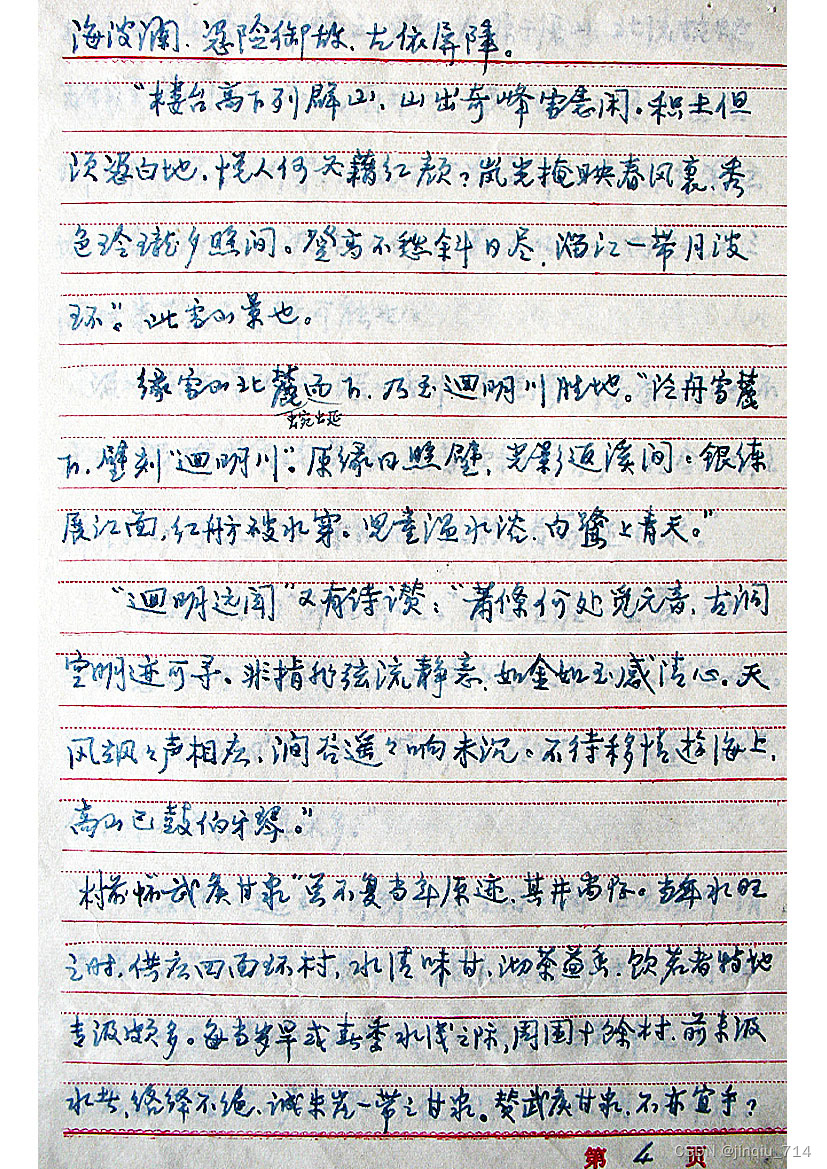 海波澜,恐险御敌,左依屏障。
“楼台高下列群山,山出奇峰雪意闲。积土但
须遇白地,悦人何必藉红颜?岚光掩映春风里,秀
色玲珑夕照间。登高不愁斜日尽,湖江一带月波
环”。此雪山景也。
缘雪山北麓而下,乃至迴明川胜地。“泛舟雪麓
蜿蜒
下,壁刻“迴明川”。原缘日照壁,光影返溪间。银练
展江面,红舫破水穿。儿童温水浴,白鹭上青天。”
“迴明远闻”又有诗赞:“萧条何处觅元音,古洞
空明迹可寻。非指非弦流静意,如金如玉感清心。天
风飒々声相应,涧谷遥々响未沉。不待移情游海上,
高山已鼓伯牙琴。”
村前“武侯甘泉”虽不复当年原迹,其井尚存。当年水旺
之时,供应四面环村,水清味甘,沏茶益香,饮茗者特地
专汲颇多。每当岁旱或春季水浅之际,周围十余村,前来汲
水者,络绎不绝,诚来崖一带之甘泉。赞武侯甘泉,不亦宜乎?
第 4 页
CSDN @jinqiu_714